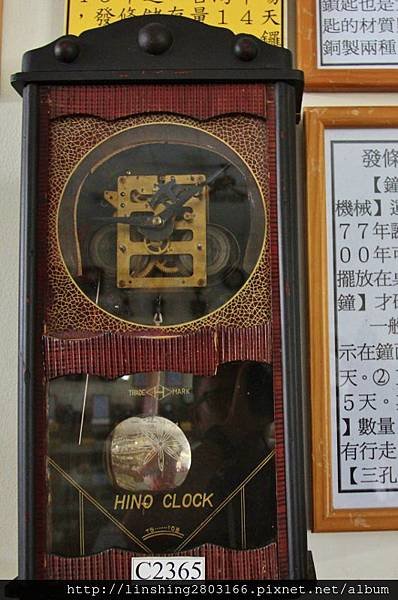 發條儲存量14天
鑼
匙的材質
銅製兩種
TRADE MARK
H
HINO CLOCK
C2365
發條
【鐘
機械】
77年
00年可
擺放在桌
鐘】才
一般
示在鐘面
天。②
5天。
】數量
有行走
【三孔
http://linshing2803166.pixnet.net/album